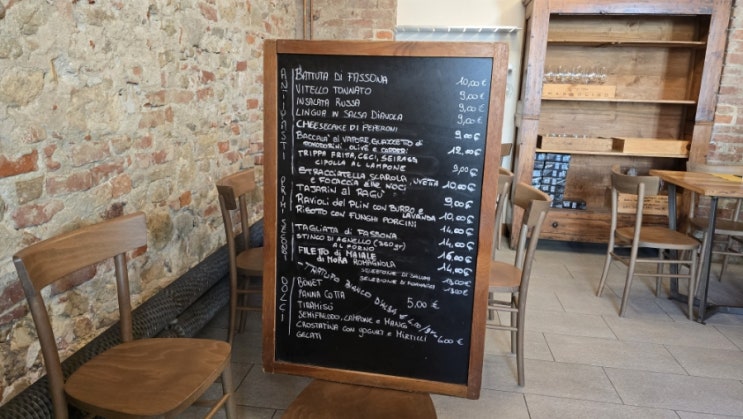 ANTIPASTI
BATTUTA DI FASSONA 10,00€
VITELLO TONNATO 9,00€
INSALATA RUSSA 9,00€
LINGUA IN SALSA DIAVOLA 9,00€
CHEESECAKE DI PEPERONI 9,00€
BACCALA' AL VAPORE, GUAZZETTO DI
POMODORINI, OLIVE E CAPPERI 12,00€
TRIPPA FRITA, CECI, SEIRASS
CIPOLLA AL LAMPONE 9,00€
STRACCIATELLA SCAROLA, UVETTA
E FOCACCIA ALLE NOCI 10,00€
PRIMI
TAJARIN AL RAGU' 9,00€
RAVIOLI DEL PLIN CON BURRO E
LAVANDA 10,00€
RISOTTO CON FUNGHI PORCINI 14,00€
SECONDI
TAGLIATA DI FASSONA 14,00€
STINCO DI AGNELLO (350gr)
AL FORNO 16,00€
FILETTO DI MAIALE
DI MORA ROMAGNOLA 14,00€
SELEZIONE DI SALUMI
SELEZIONE DI FORMAGGI 13,00€
DOLCI
BONET
PANNA COTTA 5,00€
TIRAMISÙ
SEMIFREDDO, LAMPONE E MANGO
CROSTATINA CON YOGURT E MIRTILLI 6,00€
GELATI